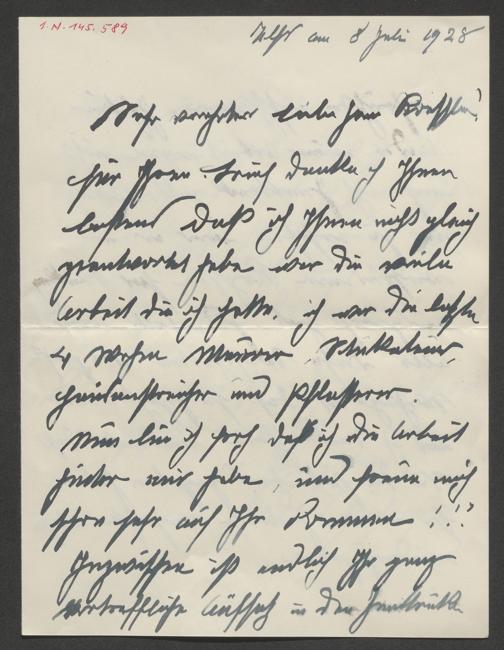 I.N. 145.589
am 8 Juli 1928
Sehr verehrter lieber Herr Roessler!
für Ihren Brief danke ich Ihnen
bestens Daß ich Ihnen nicht gleich
geantwortet habe war die viele
Arbeit die ich hatte. ich war die letzten
4 Wochen Maurer, Stukateur,
Hausanstreicher und Pflasterer.
Nun bin ich froh daß ich die Arbeit
hinter mir habe, und freue mich
schon sehr auf Ihr Kommen!!!
Inzwischen ist endlich Ihr ganz
vortrefflicher Aufsatz in der